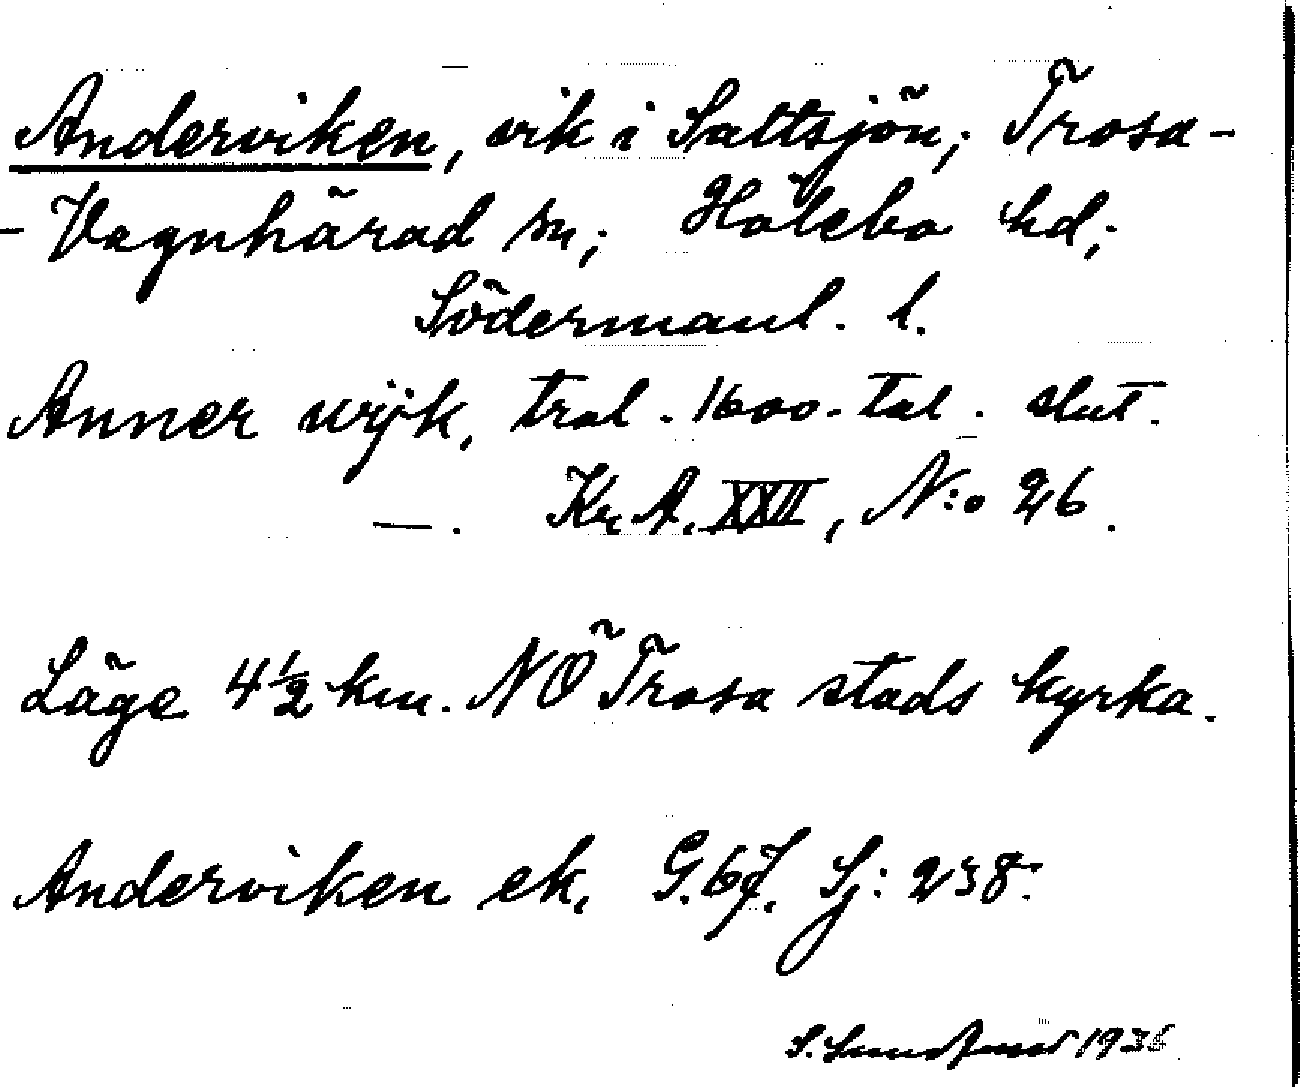 Anderviken, vik i Saltsjön; Trosa-
-Vagnhärad sn; Hölebo hd;
Södermanl. l.
Anner wijk, trol. 1600-tal. slut.
—. Kr. A. XXII, N:o 26.
Läge 4½ km. NÖ Trosa stads kyrka.
Anderviken ek. G. 67. Sj: 238.
S. 1936